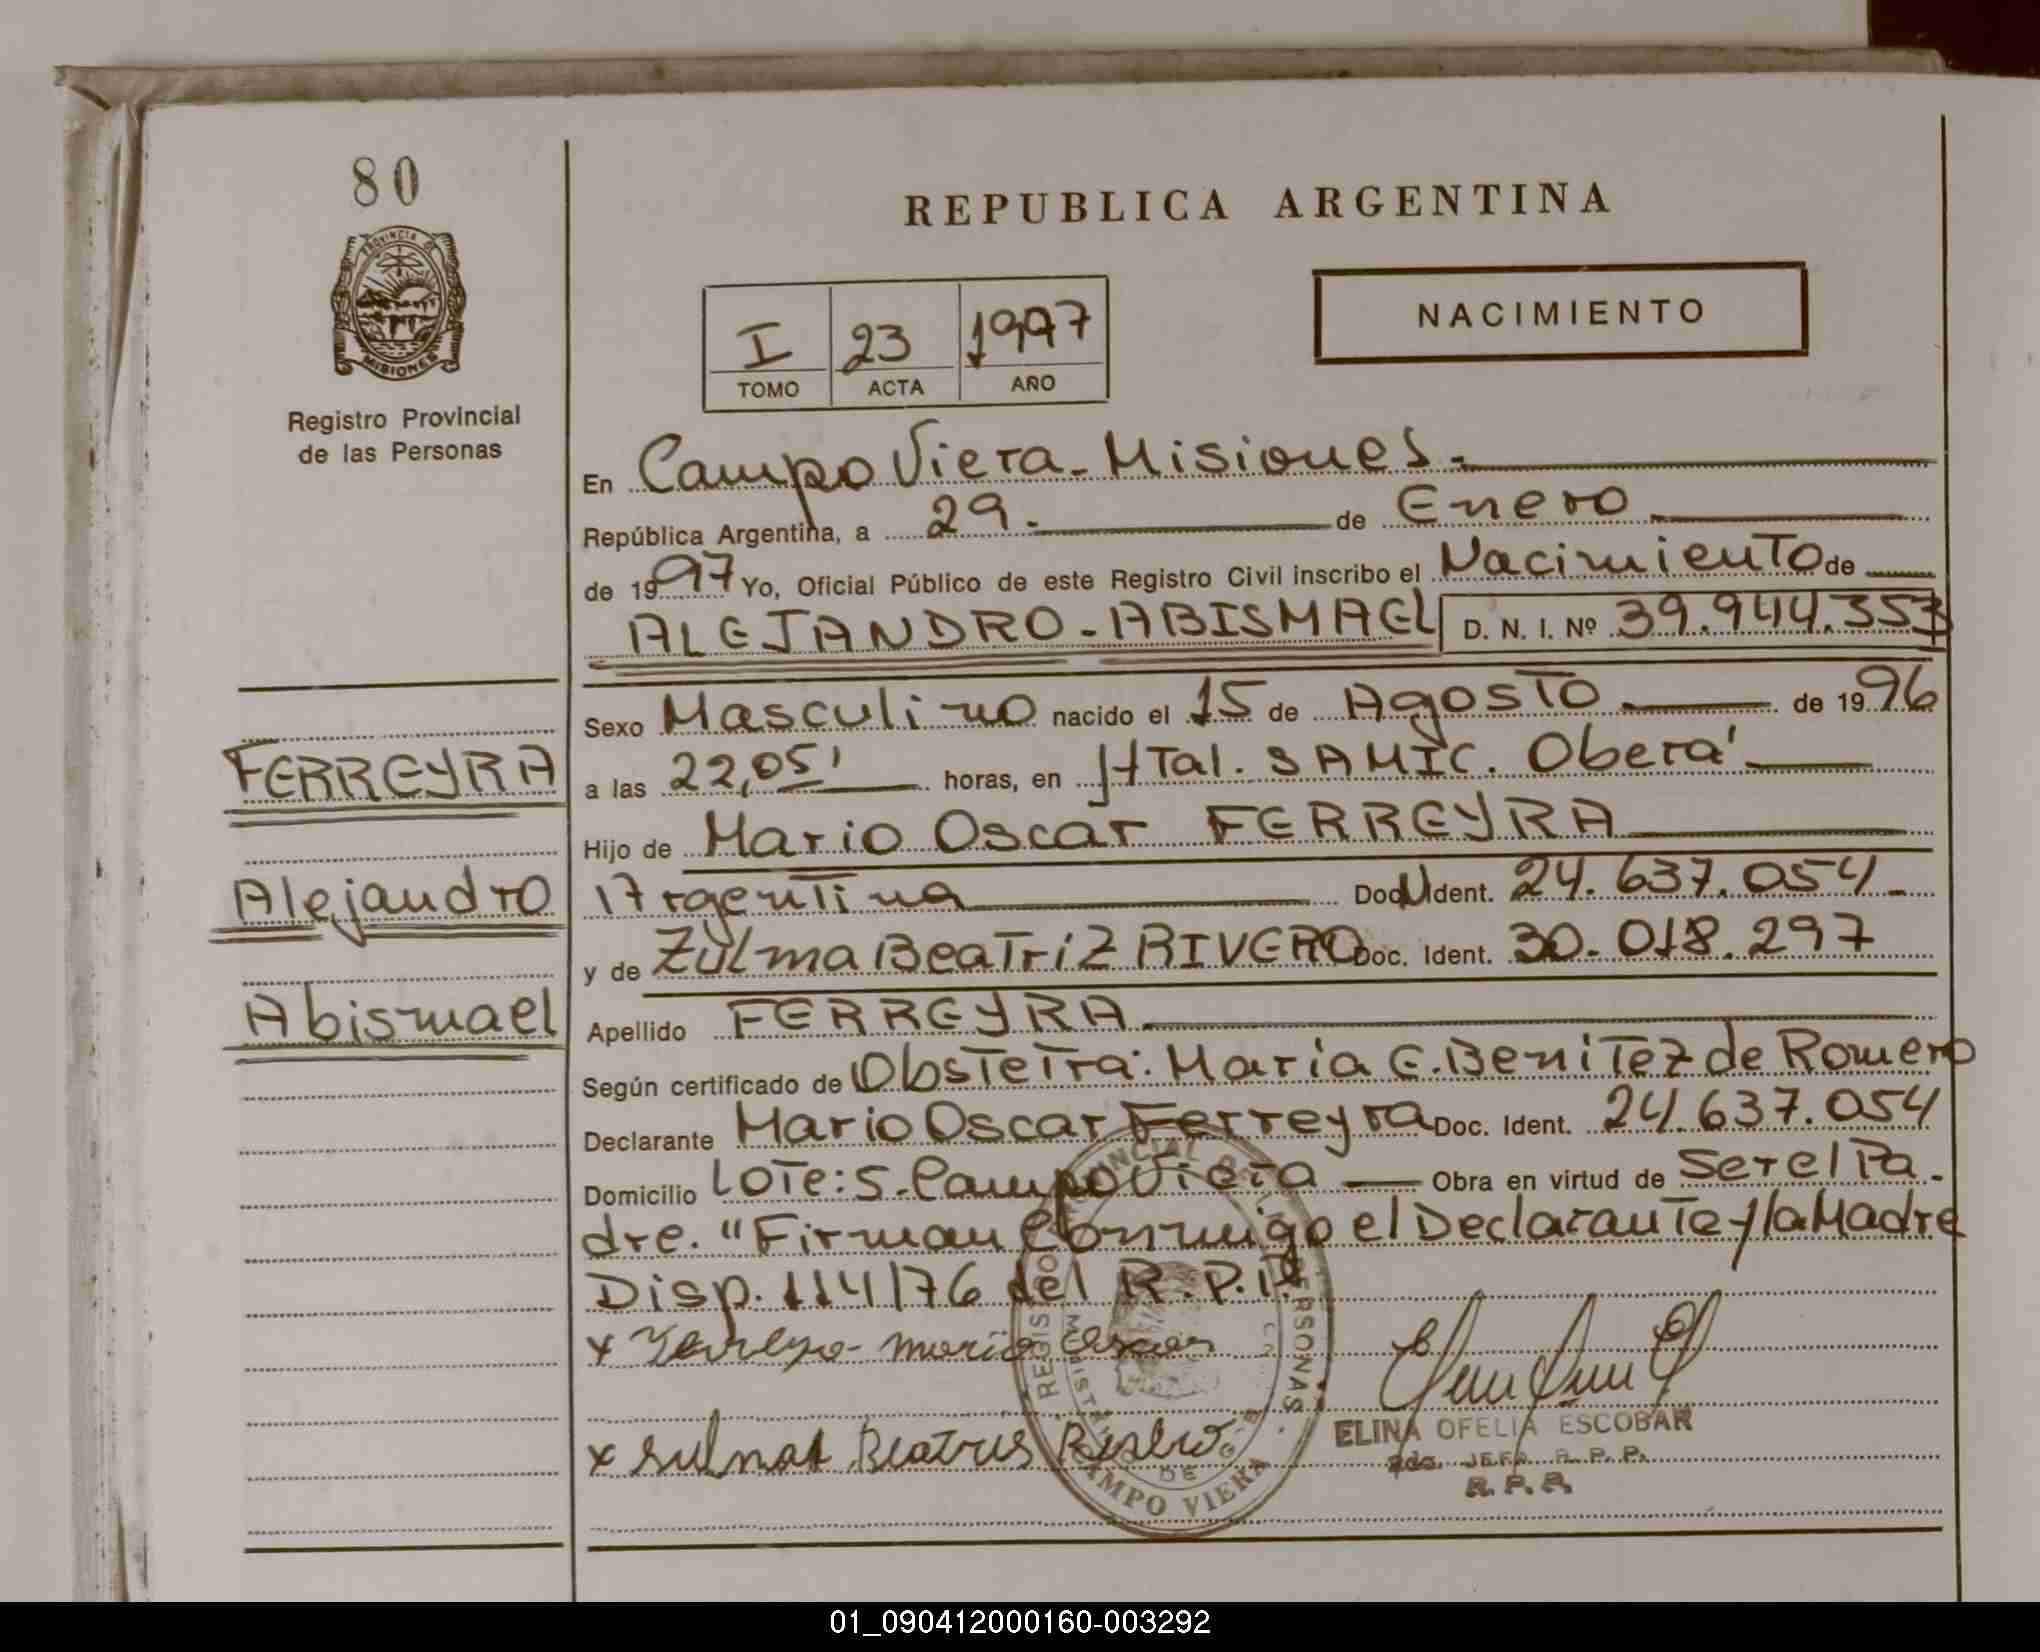 80
REPUBLICA ARGENTINA
PROVINCIA DE
MISIONES
Registro Provincial
de las Personas
I 23 1997
TOMO ACTA AÑO
NACIMIENTO
En Campo Viera - Misiones.-
República Argentina, a 29. de Enero
de 1997 Yo, Oficial Público de este Registro Civil inscribo el Nacimiento de
ALEJANDRO - ABISMAEL D. N. I. Nº 39.944.353
Sexo Masculino nacido el 15 de Agosto de 1996
a las 22,05' horas, en HTal. SAMIC. Oberá
Hijo de Mario Oscar FERREYRA
Argentina Doc. Ident. 24.637.054-
y de Zulma Beatriz RIVERO Doc. Ident. 30.018.297
Apellido FERREYRA
Según certificado de Obstetra: María E. Benitez de Romero
Declarante Mario Oscar Ferreyra Doc. Ident. 24.637.054
Domicilio Lote: 5. Campo Viera Obra en virtud de Ser el Pa-
dre. "Firman Conmigo el Declarante y la Madre
Disp. 114/76 del R.P.P.
x Ferreyra mario oscar
x Sulma Beatris Rivero
FERREYRA
Alejandro
Abismael
ELINA OFELIA ESCOBAR
JEFA R.P.P.
R.P.P.
CAMPO VIERA
01_090412000160-003292